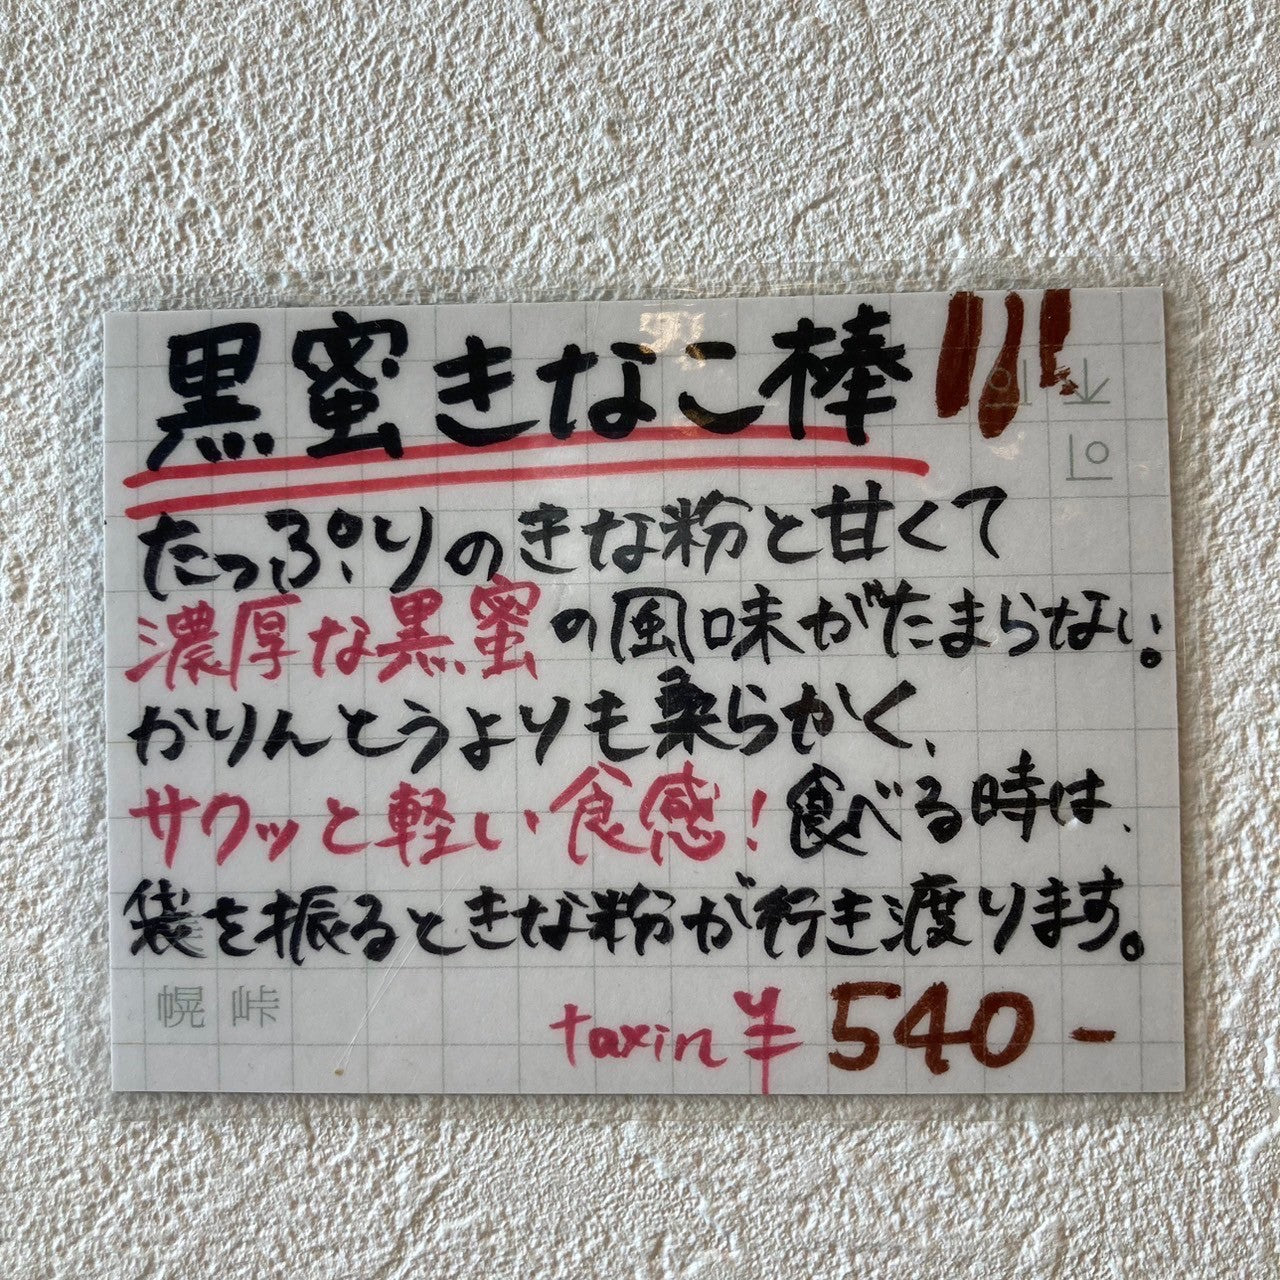 黒蜜きなこ棒
たっぷりのきな粉と甘くて
濃厚な黒蜜の風味がたまらない。
かりんとうよりも柔らかく、
サクッと軽い食感！食べる時は、
袋を振るときな粉が行き渡ります。
幌 峠
taxin ¥ 540-